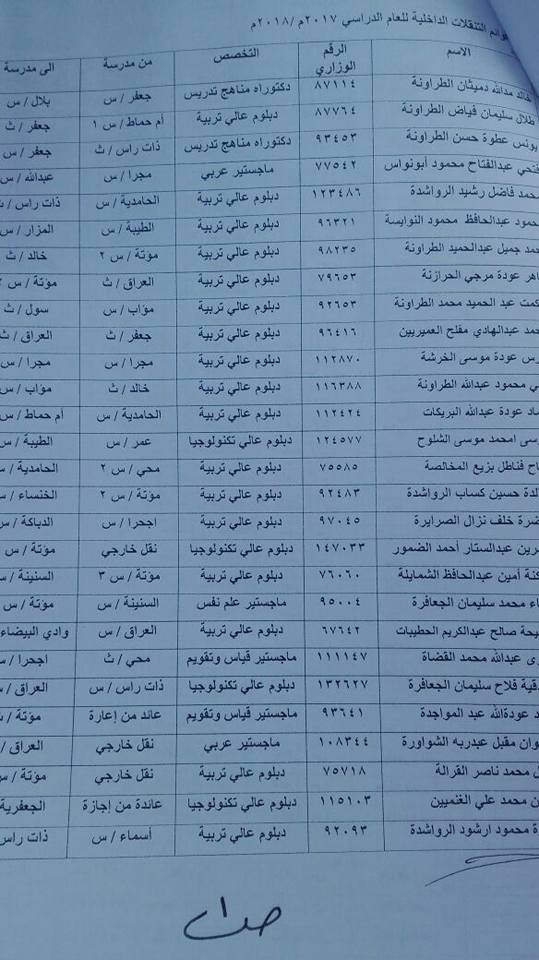 قوائم التنقلات الداخلية للعام الدراسي ٢٠١٧م /٢٠١٨م
الاسم الرقم الوزاري التخصص من مدرسة الى مدرسة
خالد مدالله دميثان الطراونة ٨٧١١٤ دكتوراه مناهج تدريس جعفر / س بلال / س
طلال سليمان فياض الطراونة ٨٧٧٦٤ دبلوم عالي تربية أم حماط / س ١ جعفر / ث
يونس عطوة حسن الطراونة ٩٣٤٥٣ دكتوراه مناهج تدريس ذات راس / ث جعفر / س
فتحي عبدالفتاح محمود أبونواس ٧٧٥٤٢ ماجستير عربي مجرا / س عبدالله / س
محمد فاضل رشيد الرواشدة ١٢٣٤٨٦ دبلوم عالي تربية الحامدية / س ذات راس / ث
محمود عبدالحافظ محمود النوايسة ٩٦٣٢١ دبلوم عالي تربية الطيبة / س المزار / س
جميل عبدالحميد الطراونة ٩٨٢٣٥ دبلوم عالي تربية مؤتة / س ٢ خالد / ث
عودة مرجي الحرازنة ٧٩٦٥٣ دبلوم عالي تربية العراق / ث مؤتة / س
عبد الحميد محمد الطراونة ٩٢٦٥٣ دبلوم عالي تربية مؤاب / س سول / ث
عبدالهادي مفلح العميريين ٩٦٤١٦ دبلوم عالي تربية جعفر / ث العراق / ث
عودة موسى الخرشة ١١٢٨٧٠ دبلوم عالي تربية مجرا / س مجرا / س
محمود عبدالله الطراونة ١١٦٣٨٨ دبلوم عالي تربية خالد / ث مؤاب / س
عودة عبدالله البريكات ١١٢٤٢٤ دبلوم عالي تربية الحامدية / س أم حماط / س
امحمد موسى الشلوح ١٢٤٥٧٧ دبلوم عالي تكنولوجيا عمر / س الطيبة / س
فناطل بزيع المخالصة ٧٥٥٨٥ دبلوم عالي تربية محي / س ٢ الحامدية / س
حسين كساب الرواشدة ٩٢٤٨٣ دبلوم عالي تربية مؤتة / س ٢ الخنساء / س
خلف نزال الصرايرة ٩٧٠٤٥ دبلوم عالي تربية اجحرا / س الدباكة / س
عبدالستار أحمد الضمور ١٤٧٠٣٣ دبلوم عالي تكنولوجيا نقل خارجي مؤتة / س
أمين عبدالحافظ الشمايلة ٧٦٠٦٠ دبلوم عالي تربية مؤتة / س ٣ السنينة / س
محمد سليمان الجعافرة ٩٥٠٠٤ ماجستير علم نفس السنينة / س مؤتة / س
صالح عبدالكريم الحطيبات ٦٧٦٤٢ دبلوم عالي تربية العراق / س وادي البيضاء
عبدالله محمد القضاة ١١١١٤٧ ماجستير قياس وتقويم محي / ث اجحرا / س
فلاح سليمان الجعافرة ١٣٢٦٢٧ دبلوم عالي تكنولوجيا ذات راس / س العراق / س
عودةالله عبد المواجدة ٩٣٦٤١ ماجستير قياس وتقويم عائد من إعارة مؤتة / ث
مقبل عبدربه الشواورة ١٠٨٣٤٤ ماجستير عربي نقل خارجي العراق /
محمد ناصر القرالة ٧٥٧١٨ دبلوم عالي تربية نقل خارجي مؤتة / س
محمد علي الغنميين ١١٥١٠٣ دبلوم عالي تكنولوجيا عائدة من إجازة الجعفرية
محمود ارشود الرواشدة ٩٢٠٩٣ دبلوم عالي تربية أسماء / س ذات راس